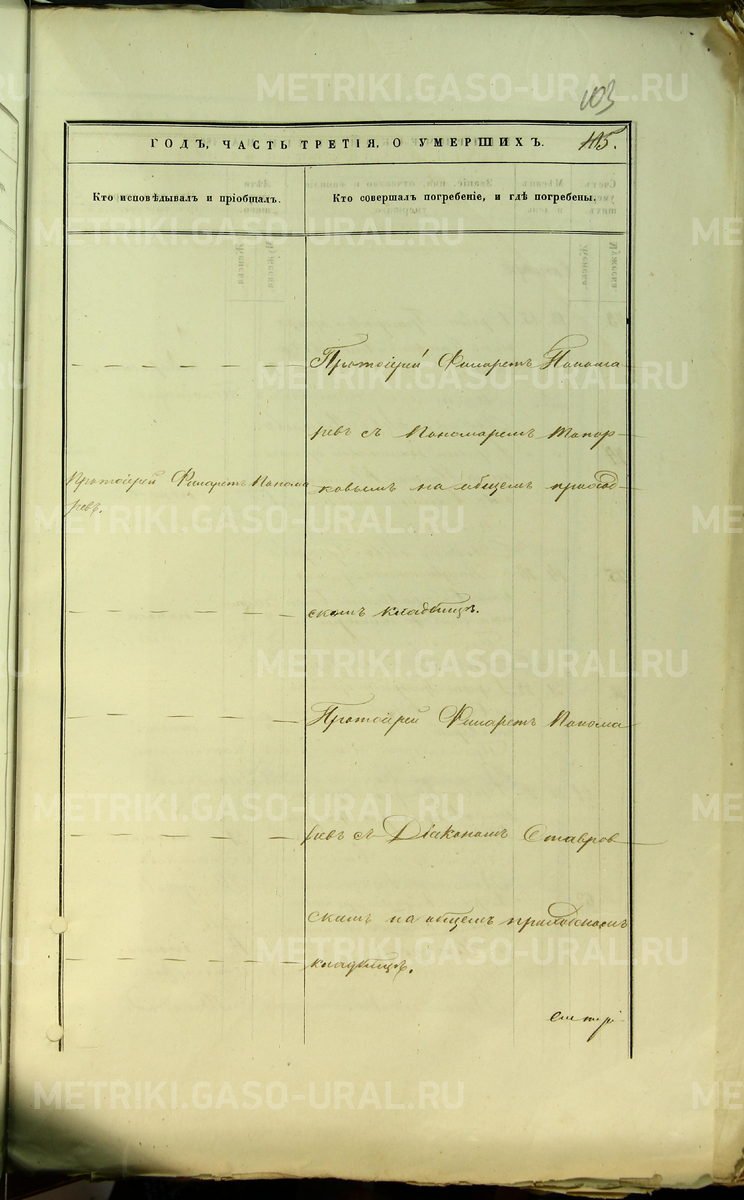 103
ГОДЪ, ЧАСТЬ ТРЕТІЯ, О УМЕРШИХЪ. 105.
Кто исповѣдывалъ и пріобщалъ.
Кто совершалъ погребеніе, и гдѣ погребены.
Протоіерей Филаретъ Понома
ревъ.
Протоіерей Филаретъ Понома
ревъ съ Пономаремъ Топор-
ковымъ на общемъ приход-
скомъ кладбищѣ.
Протоіерей Филаретъ Понома
ревъ съ Діакономъ Ставров
скимъ на общемъ приходскомъ
кладбищѣ.
METRIKI.GASO-URAL.RU